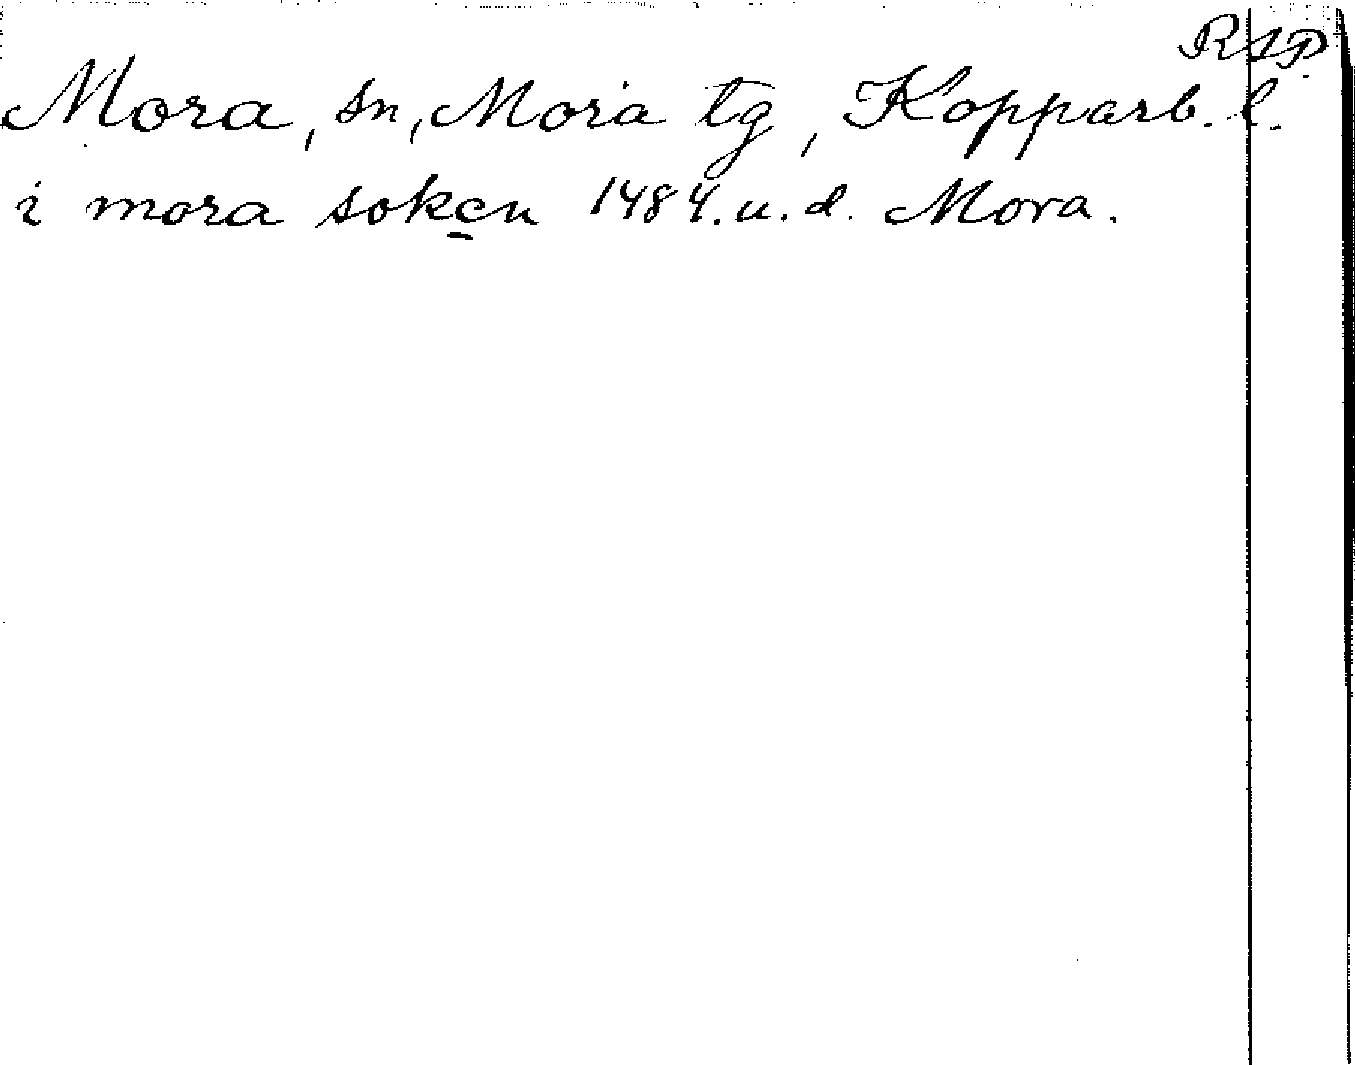 RAP
Mora, sn, Mora tg, Kopparb. l.
i mora soken 1484. u. d. Mora.